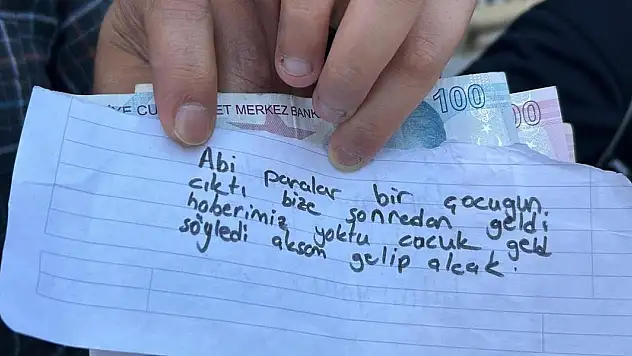 YE CU ET MERKEZ BANK
100
00
Abi paralar bir çocuğun
çıktı bize sonnedan geldi
hoberimiz yoktu cocuk geld
söyledi akşom gelip alcak.